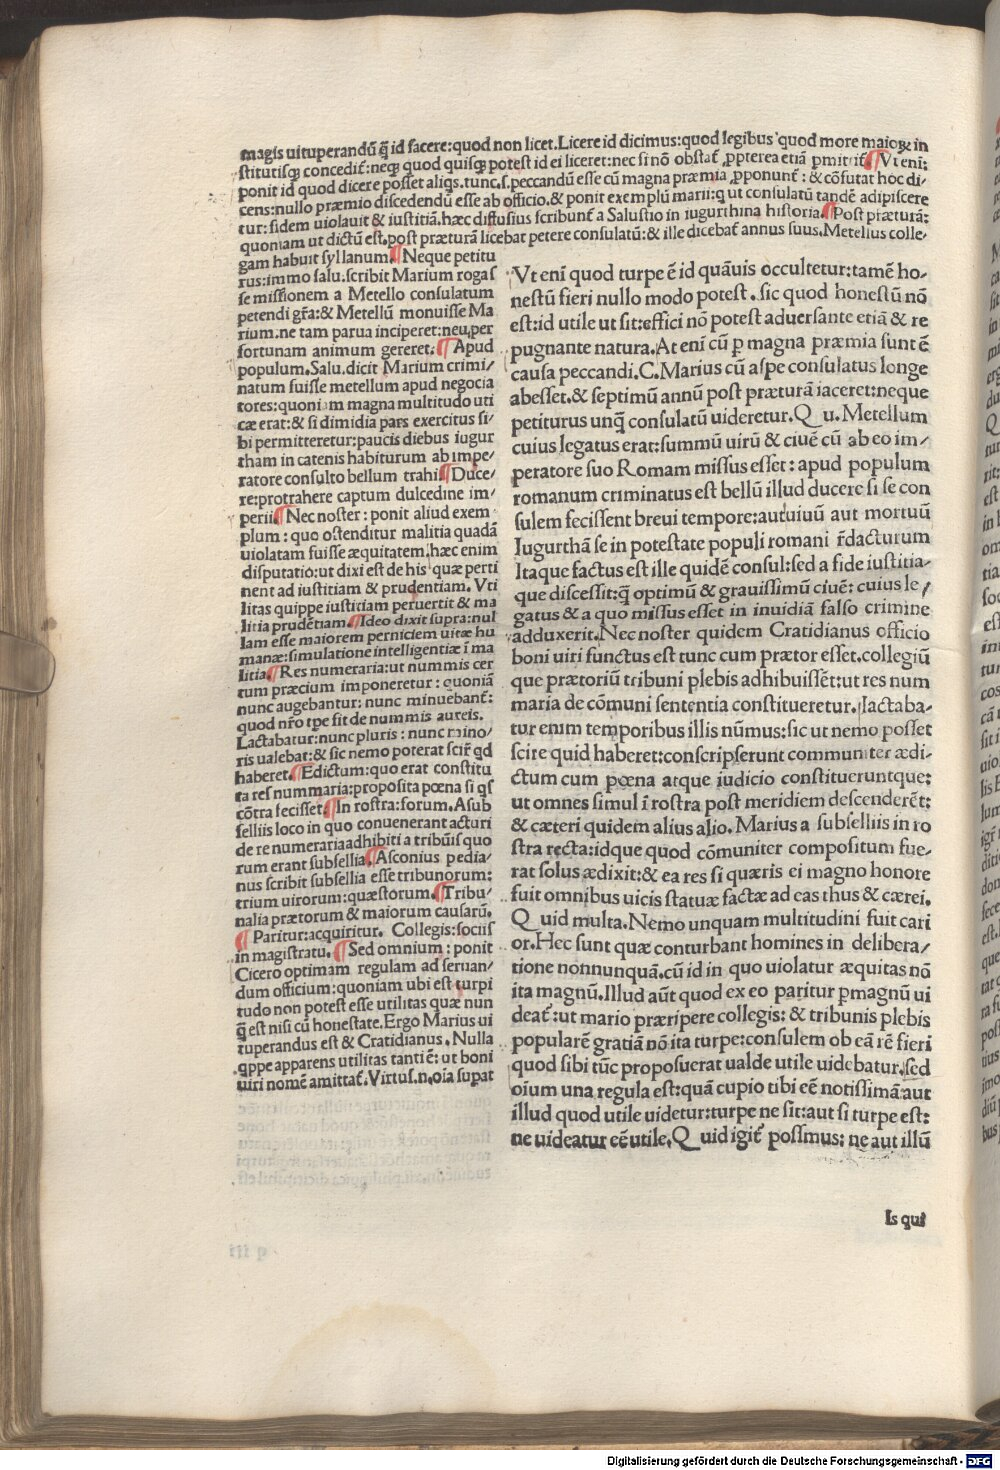 magis uituperandū q̄ id facere:quod non licet.Licere id dicimus:quod legibus quod more maioꝝ in
stitutisqꝫ concedit̄:neqꝫ quod quisqꝫ potest id ei liceret:nec si nō obstat̄ ꝓpterea etiā ꝑmittit̄ ¶Vt eni:
ponit id quod dicere posset aliqs.tunc.s.peccandū esse cū magna præmia ꝓponunt̄: & cōfutat hoc di/
cens:nullo præmio discedendū esse ab officio.& ponit exemplū marii:q ut consulatū tandē adipiscere
tur:fidem uiolauit & iustitiā.hæc diffusius scribunt̄ a Salustio in iugurthina historia.¶Post præturā:
quoniam ut dictū est.post præturā licebat petere consulatū:& ille dicebat̄ annus suus.Metellus colle/
gam habuit syllanum.¶Neque petitu
rus:immo salu.scribit Marium rogas
se missionem a Metello consulatum
petendi gr̄a:& Metellū monuisse Ma
rium.ne tam parua inciperet:neu per
fortunam animum gereret.¶Apud
populum.Salu.dicit Marium crimi/
natum fuisse metellum apud negocia
tores:quoniam magna multitudo uti
cæ erat:& si dimidia pars exercitus si/
bi permitteretur:paucis diebus iugur
tham in catenis habiturum ab impe/
ratore consulto bellum trahi¶Duce/
re:protrahere captum dulcedine im/
perii¶Nec noster: ponit aliud exem
plum: quo ostenditur malitia quadā
uiolatam fuisse æquitatem.hæc enim
disputatio:ut dixi est de his quæ perti
nent ad iustitiam & prudentiam. Vti
litas quippe iustitiam peruertit & ma
litia prudētiam.¶Ideo dixit supra:nul
lam esse maiorem perniciem uitæ hu
manæ:simulatione intelligentiæ ī ma
litia.¶Res numeraria:ut nummis cer
tum præcium imponeretur: quoniā
nunc augebantur: nunc minuebant̄:
quod nr̄o tpe sit de nummis aureis.
Lactabatur:nunc pluris: nunc mino/
ris ualebat:& sic nemo poterat scir̄ qd
haberet.¶Edictum:quo erat constitu
ta res nummaria:proposita pœna si qs
cōtra fecisset.¶In rostra:forum.A sub
selliis loco in quo conuenerant acturi
de re numeraria adhibiti a tribūis quo
rum erant subsellia.¶Asconius pedia/
nus scribit subsellia esse tribunorum:
trium uirorum:quæstorum.¶Tribu/
nalia prætorum & maiorum causarū.
¶Paritur:acquiritur. Collegis:sociis
in magistratu. ¶Sed omnium: ponit
Cicero optimam regulam ad seruan/
dum officium:quoniam ubi est turpi
tudo non potest esse utilitas quæ nun
q̄ est nisi cū honestate.Ergo Marius ui
tuperandus est & Cratidianus. Nulla
qppe apparens utilitas tanti ē: ut boni
uiri nomē amittat̄.Virtus.n.oīa supat
Vt enī quod turpe ē id quāuis occultetur:tamē ho/
nestū fieri nullo modo potest.sic quod honestū nō
est:id utile ut sit:effici nō potest aduersante etiā & re
pugnante natura.At enī cū ꝑ magna præmia sunt ē
causa peccandi.C.Marius cū a spe consulatus longe
abesset.& septimū annū post præturā iaceret:neque
petiturus unq̄ consulatū uideretur.Q u.Metellum
cuius legatus erat:summū uirū & ciuē cū ab eo im/
peratore suo Romam missus esset: apud populum
romanum criminatus est bellū illud ducere si se con
sulem fecissent breui tempore:aut uiuū aut mortuū
Iugurthā se in potestate populi romani r̄dacturum
Itaque factus est ille quidē consul:sed a fide iustitia/
que discessit:q optimū & grauissimū ciuē: cuius le/
gatus & a quo missus esset in inuidiā falso crimine
adduxerit.Nec noster quidem Cratidianus officio
boni uiri functus est tunc cum prætor esset.collegiū
que prætoriū tribuni plebis adhibuissēt:ut res num
maria de cōmuni sententia constitueretur. Iactaba/
tur enim temporibus illis nūmus:sic ut nemo posset
scire quid haberet:conscripserunt communiter ædi/
ctum cum pœna atque iudicio constitueruntque:
ut omnes simul ī rostra post meridiem descenderēt:
& cæteri quidem alius alio.Marius a subselliis in ro
stra recta:idque quod cōmuniter compositum fue/
rat solus ædixit:& ea res si quæris ei magno honore
fuit omnibus uicis statuæ factæ ad eas thus & cærei.
Q uid multa.Nemo unquam multitudini fuit cari
or.Hec sunt quæ conturbant homines in delibera/
tione nonnunquā.cū id in quo uiolatur æquitas nō
ita magnū.Illud aūt quod ex eo paritur ꝑmagnū ui
deat̄:ut mario præripere collegis: & tribunis plebis
popularē gratiā nō ita turpe:consulem ob eā rē fieri
quod sibi tūc proposuerat ualde utile uidebatur.sed
oīum una regula est:quā cupio tibi eē notissimā:aut
illud quod utile uidetur:turpe ne sit:aut si turpe est:
ne uideatur eē utile.Q uid igit̄ possmus: ne aut illū
Is qui
Digitalisierung gefördert durch die Deutsche Forschungsgemeinschaft - DFG